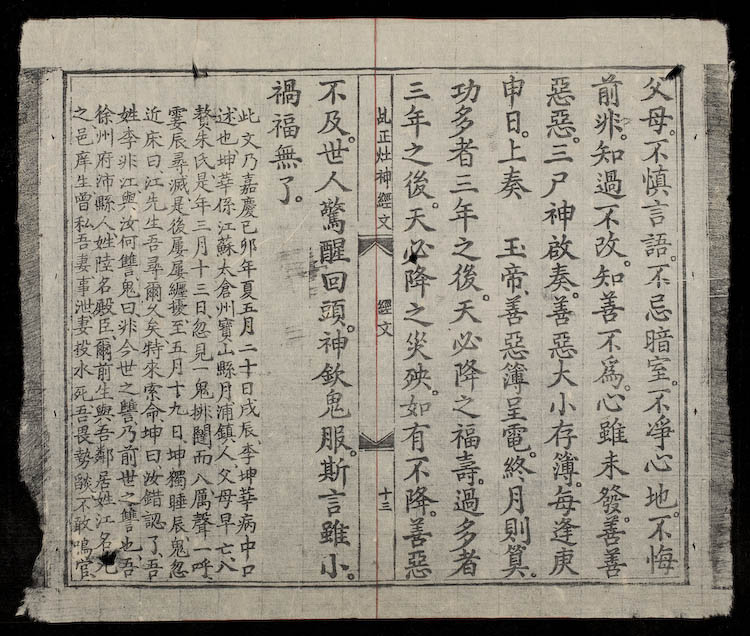 父母。不慎言語。不忌暗室。不淨心地。不悔
前非。知過不改。知善不為。心雖未發。善善
惡惡。三尸神啟奏。善惡大小存簿。每逢庚
申日。上奏　玉帝。善惡簿呈電。終月則算。
功多者三年之後。天必降之福壽。過多者
三年之後。天必降之災殃。如有不降。善惡
乩正灶神經文
經文
十三
不及。世人驚醒回頭。神欽鬼服。斯言雖小。
禍福無了。
此文乃嘉慶己卯年夏五月二十日戌辰。李坤華病中口
述也坤華係江蘇太倉州寶山縣月浦鎮人。父母早亡。入
贅朱氏。是年三月十三日。忽見一鬼排闥而入厲聲一呼。
霎辰尋滅是後屢屢纏擾。至五月十九日。坤獨睡辰。鬼忽
近床曰。江先生吾尋爾久矣特來索命坤曰汝錯認了。吾
姓李。非江與汝何讐。鬼曰非今世之讐乃前世之讐也。吾
徐州府沛縣人。姓陸名殿臣。爾前生與吾鄰居姓江名
之邑庠生曾私吾妻事泄。妻投水死。吾畏勢燄不敢鳴官。